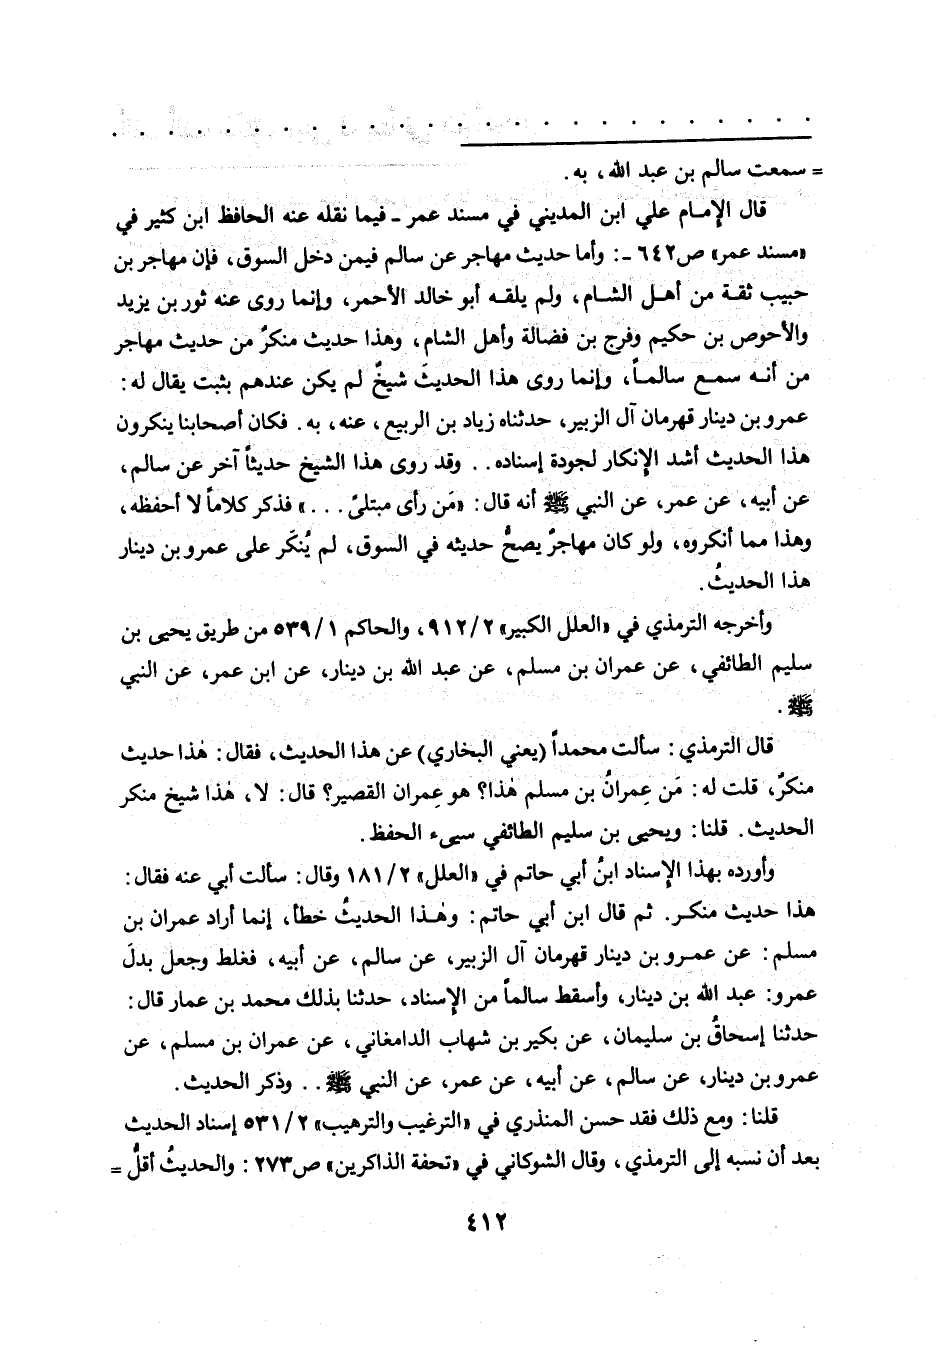 = سمعت سالم بن عبد الله، به.
قال الإمام علي ابن المديني في مسند عمر ـ فيما نقله عنه الحافظ ابن كثير في
«مسند عمر» ص٦٤٢ ـ: وأما حديث مهاجر عن سالم فيمن دخل السوق، فإن مهاجر بن
حبيب ثقة من أهل الشام، ولم يلقه أبو خالد الأحمر، وإنما روى عنه ثور بن يزيد
والأحوص بن حكيم وفرج بن فضالة وأهل الشام، وهذا حديث منكرٌ من حديث مهاجر
من أنه سمع سالماً، وإنما روى هذا الحديثَ شيخٌ لم يكن عندهم بثبت يقال له:
عمرو بن دينار قهرمان آل الزبير، حدثناه زياد بن الربيع، عنه، به. فكان أصحابنا ينكرون
هذا الحديث أشد الإنكار لجودة إسناده.. وقد روى هذا الشيخ حديثاً آخر عن سالم،
عن أبيه، عن عمر، عن النبي ﷺ أنه قال: «مَن رأى مبتلىً...» فذكر كلاماً لا أحفظه،
وهذا مما أنكروه، ولو كان مهاجرٌ يصحُّ حديثه في السوق، لم يُنكَر على عمرو بن دينار
هذا الحديثُ.
وأخرجه الترمذي في «العلل الكبير» ٩١٢/٢، والحاكم ٥٣٩/١ من طريق يحيى بن
سليم الطائفي، عن عمران بن مسلم، عن عبد الله بن دينار، عن ابن عمر، عن النبي
ﷺ.
قال الترمذي: سألت محمداً (يعني البخاري) عن هذا الحديث، فقال: هٰذا حديث
منكرٌ، قلت له: مَن عِمرانُ بن مسلم هٰذا؟ هو عِمران القصير؟ قال: لا، هٰذا شيخ منكر
الحديث. قلنا: ويحيى بن سليم الطائفي سيىء الحفظ.
وأورده بهذا الإسناد ابنُ أبي حاتم في «العلل» ١٨١/٢ وقال: سألت أبي عنه فقال:
هذا حديث منكر. ثم قال ابن أبي حاتم: وهٰذا الحديثُ خطأ، إنما أراد عمران بن
مسلم: عن عمرو بن دينار قهرمان آل الزبير، عن سالم، عن أبيه، فغلط وجعل بدلَ
عمرو: عبد الله بن دينار، وأسقط سالماً من الإسناد، حدثنا بذلك محمد بن عمار قال:
حدثنا إسحاقُ بن سليمان، عن بكير بن شهاب الدامغاني، عن عمران بن مسلم، عن
عمرو بن دينار، عن سالم، عن أبيه، عن عمر، عن النبي ﷺ.. وذكر الحديث.
قلنا: ومع ذلك فقد حسن المنذري في «الترغيب والترهيب» ٥٣١/٢ إسناد الحديث
بعد أن نسبه إلى الترمذي، وقال الشوكاني في «تحفة الذاكرين» ص٢٧٣: والحديثُ أقلُّ =
٤١٢